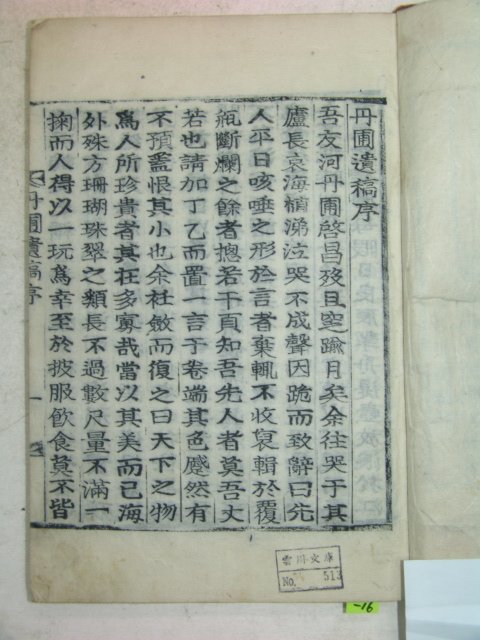 丹圃遺稿序
吾友河丹圃啓昌歿且堲踰月矣余往哭于其
廬長哀海楨涕泣哭不成聲因跪而致辭曰先
人平日咳唾之形於言者棄輒不收裒輯於覆
瓿斷爛之餘者摠若干頁知吾先人者莫吾丈
若也請加丁乙而置一言于卷端其色蹙然有
不預蓋恨其小也余社斂而復之曰天下之物
爲人所珍貴者其在多寡哉當以其美而已海
外殊方珊瑚珠翠之類長不過數尺量不滿一
掬而人得以一玩爲幸至於披服飮食莫不皆
丹圃遺稿序
一
雲川文庫
No. 513
-16